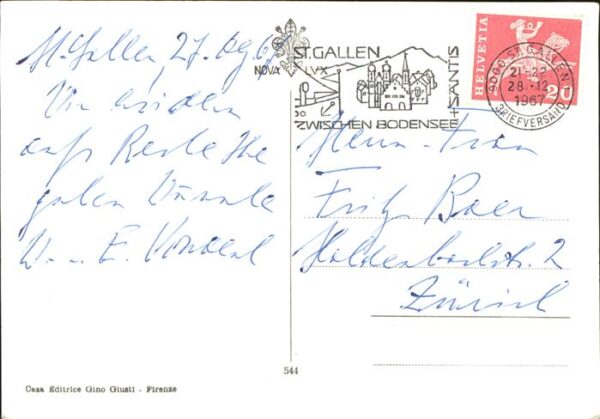 St. Gallen, 27. Dez 67
Wir
aufs Beste Ihre
guten Wünsche
E.
ST. GALLEN
NOVA LVX
ZWISCHEN BODENSEE
+ SÄNTIS
9000 ST. GALLEN
21-22
28.-12
1967
BRIEFVERSAND
HELVETIA
20
Herrn + Frau
Fritz Baer
2
Zürich
544
Casa Editrice Gino Giusti - Firenze